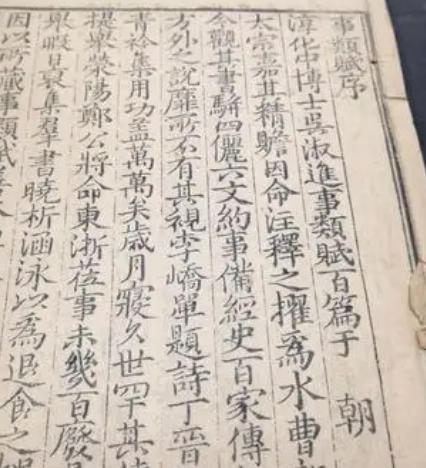 事類賦序
淳化中博士吳淑進事類賦百篇于 朝
太宗嘉其精贍因命注釋之擢爲水曹
今觀其書駢四儷六文約事備經史百家傳
方外之說靡所不有其視李嶠單題詩丁晉
青衿集用功蓋萬萬矣歲月寖久世罕其
提舉榮陽鄭公將命東浙莅事未幾百廢
舉暇日裒集羣書曉析涵泳以爲退食之
因以所藏事類賦